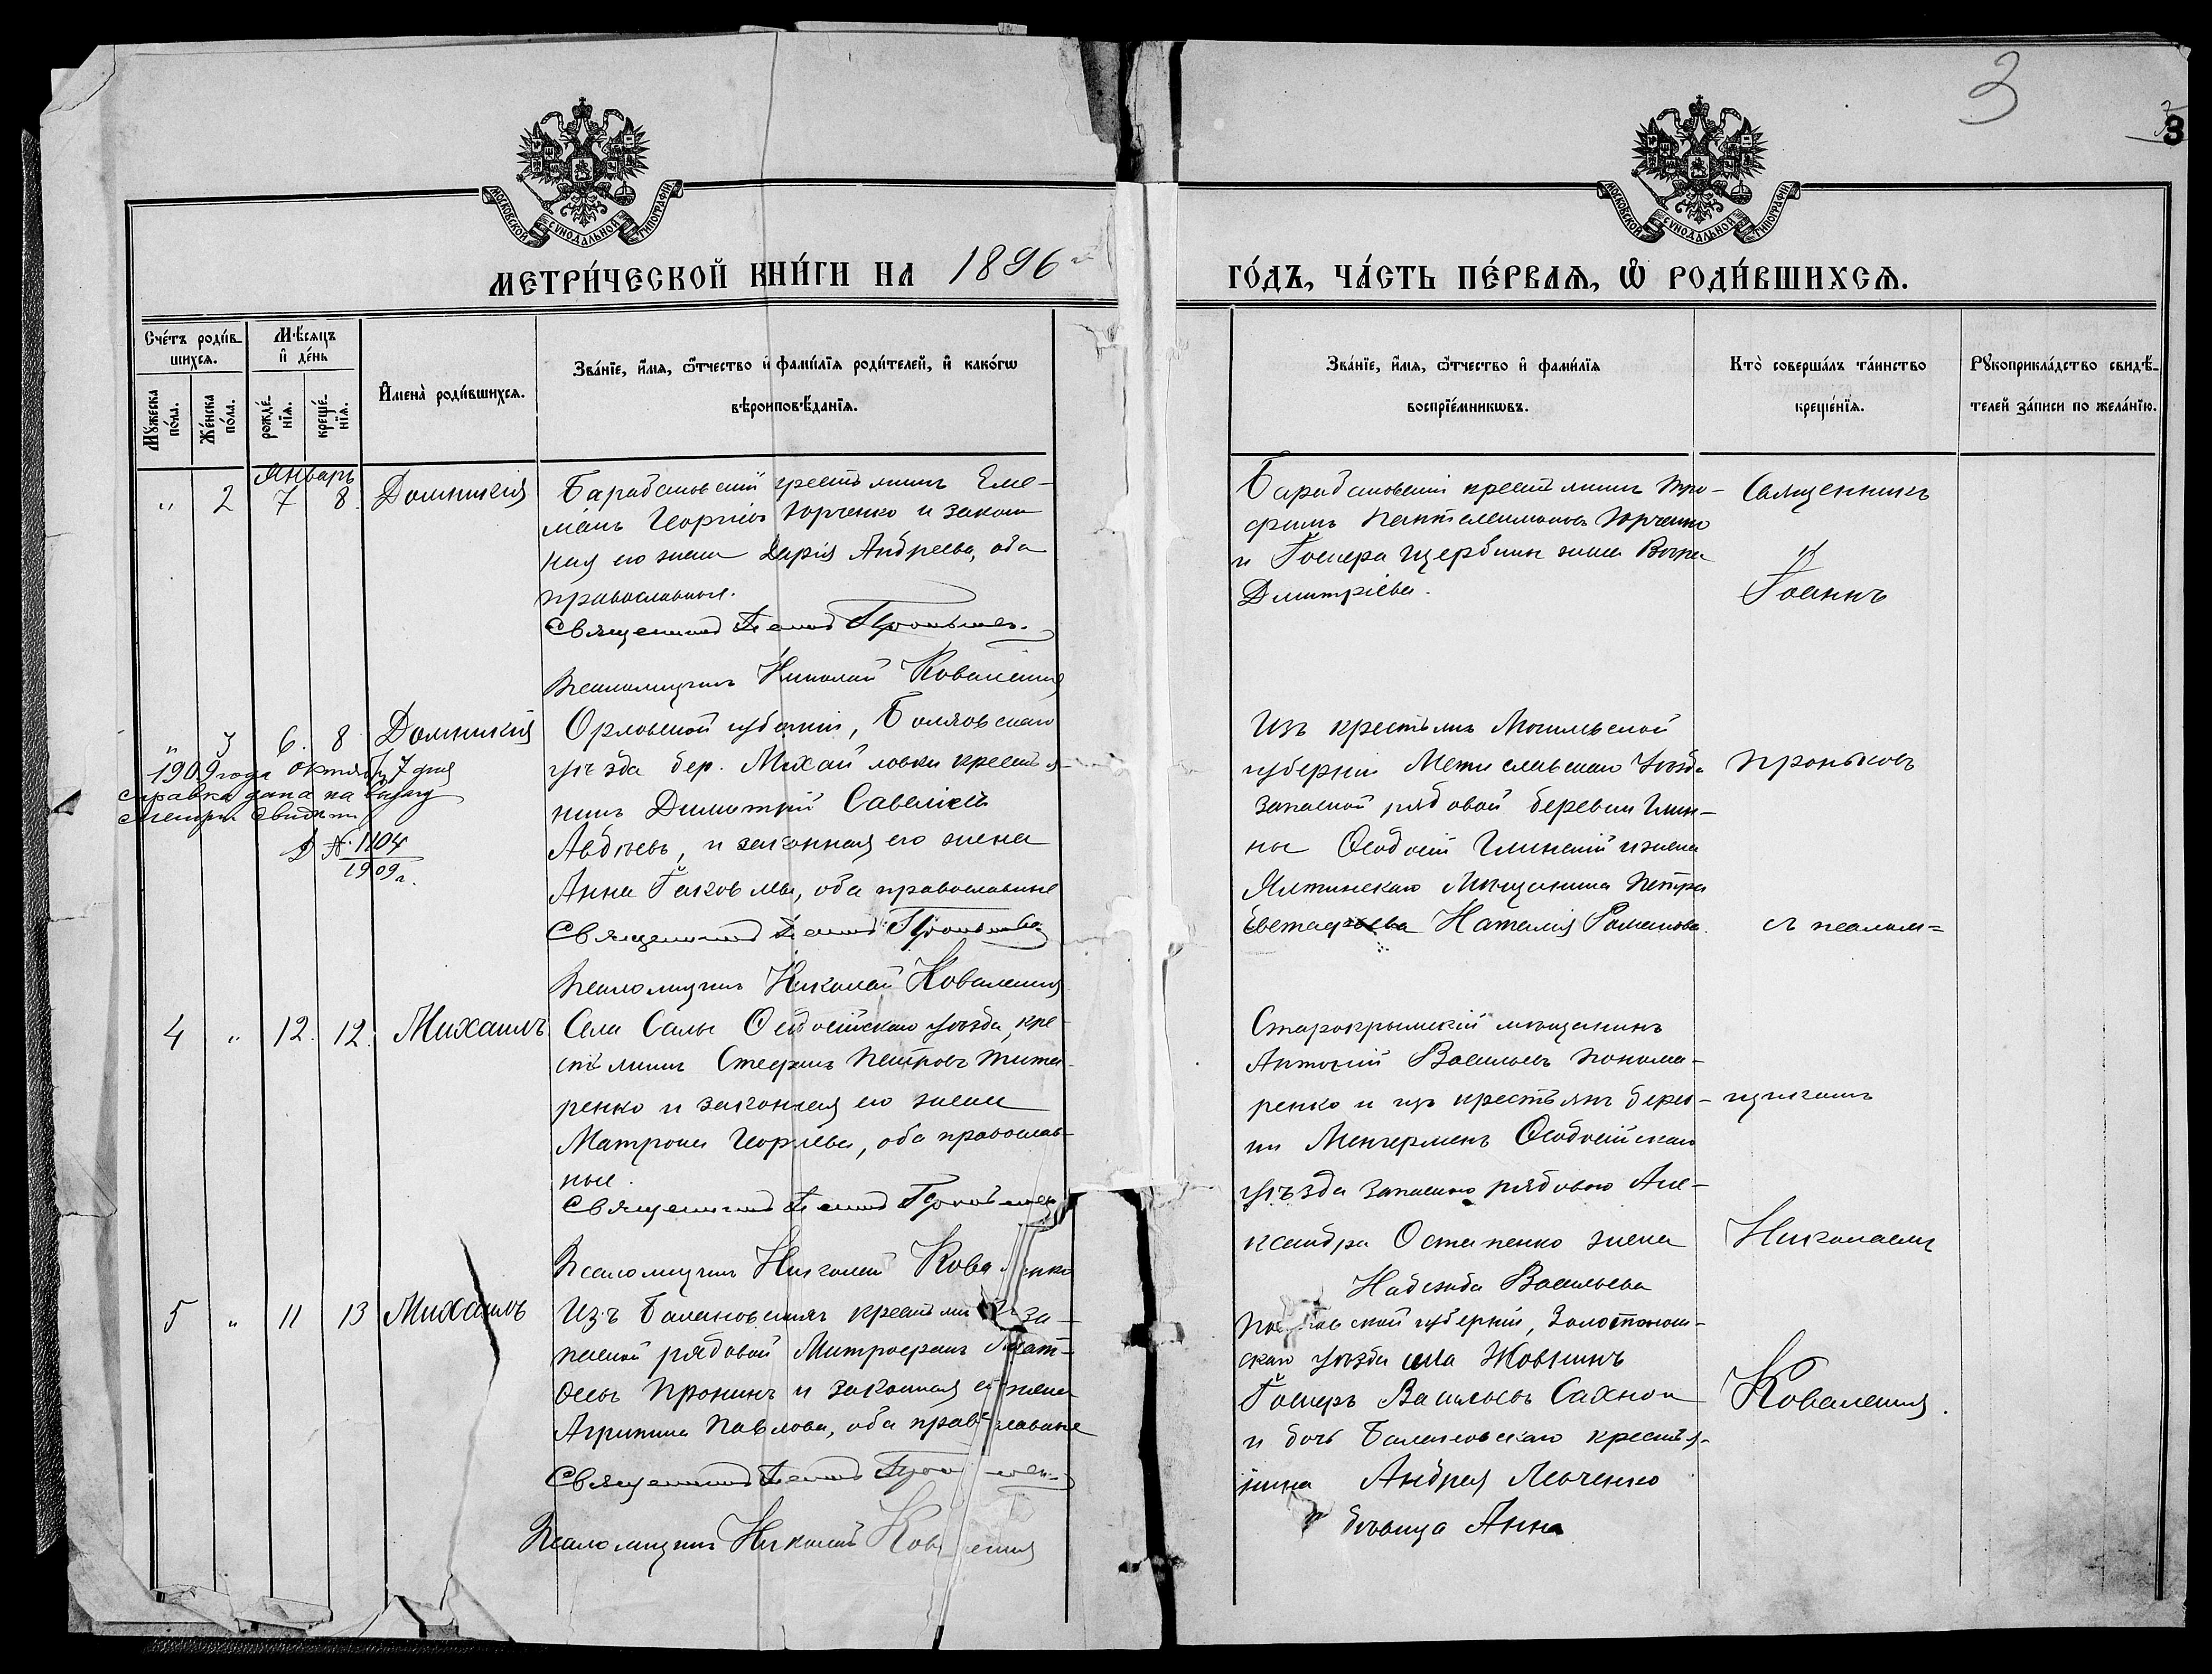 3
3
МОСКОВСКОЙ СУНОДАЛЬНОЙ ТИПОГРАФІИ
МОСКОВСКОЙ СУНОДАЛЬНОЙ ТИПОГРАФІИ
МЕТРИ́ЧЕСКОЙ КНИ́ГИ НА 1896
ГО́ДЪ, ЧА́СТЬ ПЕ́РВАѦ, Ѿ РОДИ́ВШИХСѦ.
Сче́тъ роди́в-
шихсѧ.
Мꙋжеска по́ла.
Же́нска по́ла.
Мѣ́сѧцъ
и де́нь
рожде́-
нїѧ.
креще́-
нїѧ.
Имена̀ роди́вшихсѧ.
Зва́нїе, и́мѧ, ѻ́тчество и фами́лїѧ роди́телей, и како́гѡ
вѣроисповѣ́данїѧ.
Зва́нїе, и́мѧ, ѻ́тчество и фами́лїѧ
воспрїе́мникѡвъ.
Кто̀ соверша́лъ та́инство
креще́нїѧ.
Рꙋкоприкла́дство свидѣ́-
телей за́писи по жела́нїю.
Январь
" 2 7 8. Домникія
Барабановскій крестьянинъ Еме-
льянъ Георгіевъ Юрченко и закон
ная его жена Дарія Андреева, оба
православные.
Священникъ Іоаннъ Проньковъ.
Псаломщикъ Николай Коваленко
Барабановскій крестьянинъ Тро-
фимъ Пантелеимоновъ Юрченко
и Іосифа Щербины жена
Димитріева.
Священникъ
Іоаннъ
" 3 6. 8 Домникія
1909 года октября 7 дня
справка дана на
метрич. свидѣт.
№ 1104
1909 г.
Орловской губерніи, Болховскаго
уѣзда дер. Михайловки крестья-
нинъ Димитрій Савельевъ
Авдѣевъ, и законная его жена
Анна Іаковлева, оба православные
Священникъ Іоаннъ Проньковъ
Псаломщикъ Николай Коваленко
Изъ крестьянъ Могилевской
губерніи Мстиславскаго уѣзда
запасной рядовой деревни Глин-
ны Глинскій и жена
Ялтинскаго мѣщанина Петра
Евстафьева Наталія Романова.
Проньковъ
съ псалом=
4 " 12. 12. Михаилъ
Села Салы Ѳеодосійскаго уѣзда, кре-
стьянинъ Стефанъ Петровъ Тита-
ренко и законная его жена
Матрона Георгіева, оба православ-
ные.
Священникъ Іоаннъ Проньковъ
Псаломщикъ Николай Коваленко
Старокрымскій мѣщанинъ
Антоній Васильевъ Понома-
ренко и изъ крестьянъ дерев-
ни Менгерменъ Ѳеодосійскаго
уѣзда запаснаго рядового Але-
ксандра Остапенко жена
Надежда Васильева
щикомъ
Николаемъ
5 " 11 13 Михаилъ
Изъ Балановскихъ крестьянъ за-
пасной рядовой Митрофанъ Мат-
ѳеевъ Пронинъ и законная его жена
Агрипина Павлова, оба православные
Священникъ Іоаннъ Проньковъ
Псаломщикъ Николай Коваленко
Полтавской губерніи, Золотонош-
скаго уѣзда села Жовнинъ
Іосифъ Васильевъ Сахно
и дочь Балановскаго крестья-
нина Андрея Левченко
дѣвица Анна
Коваленко.